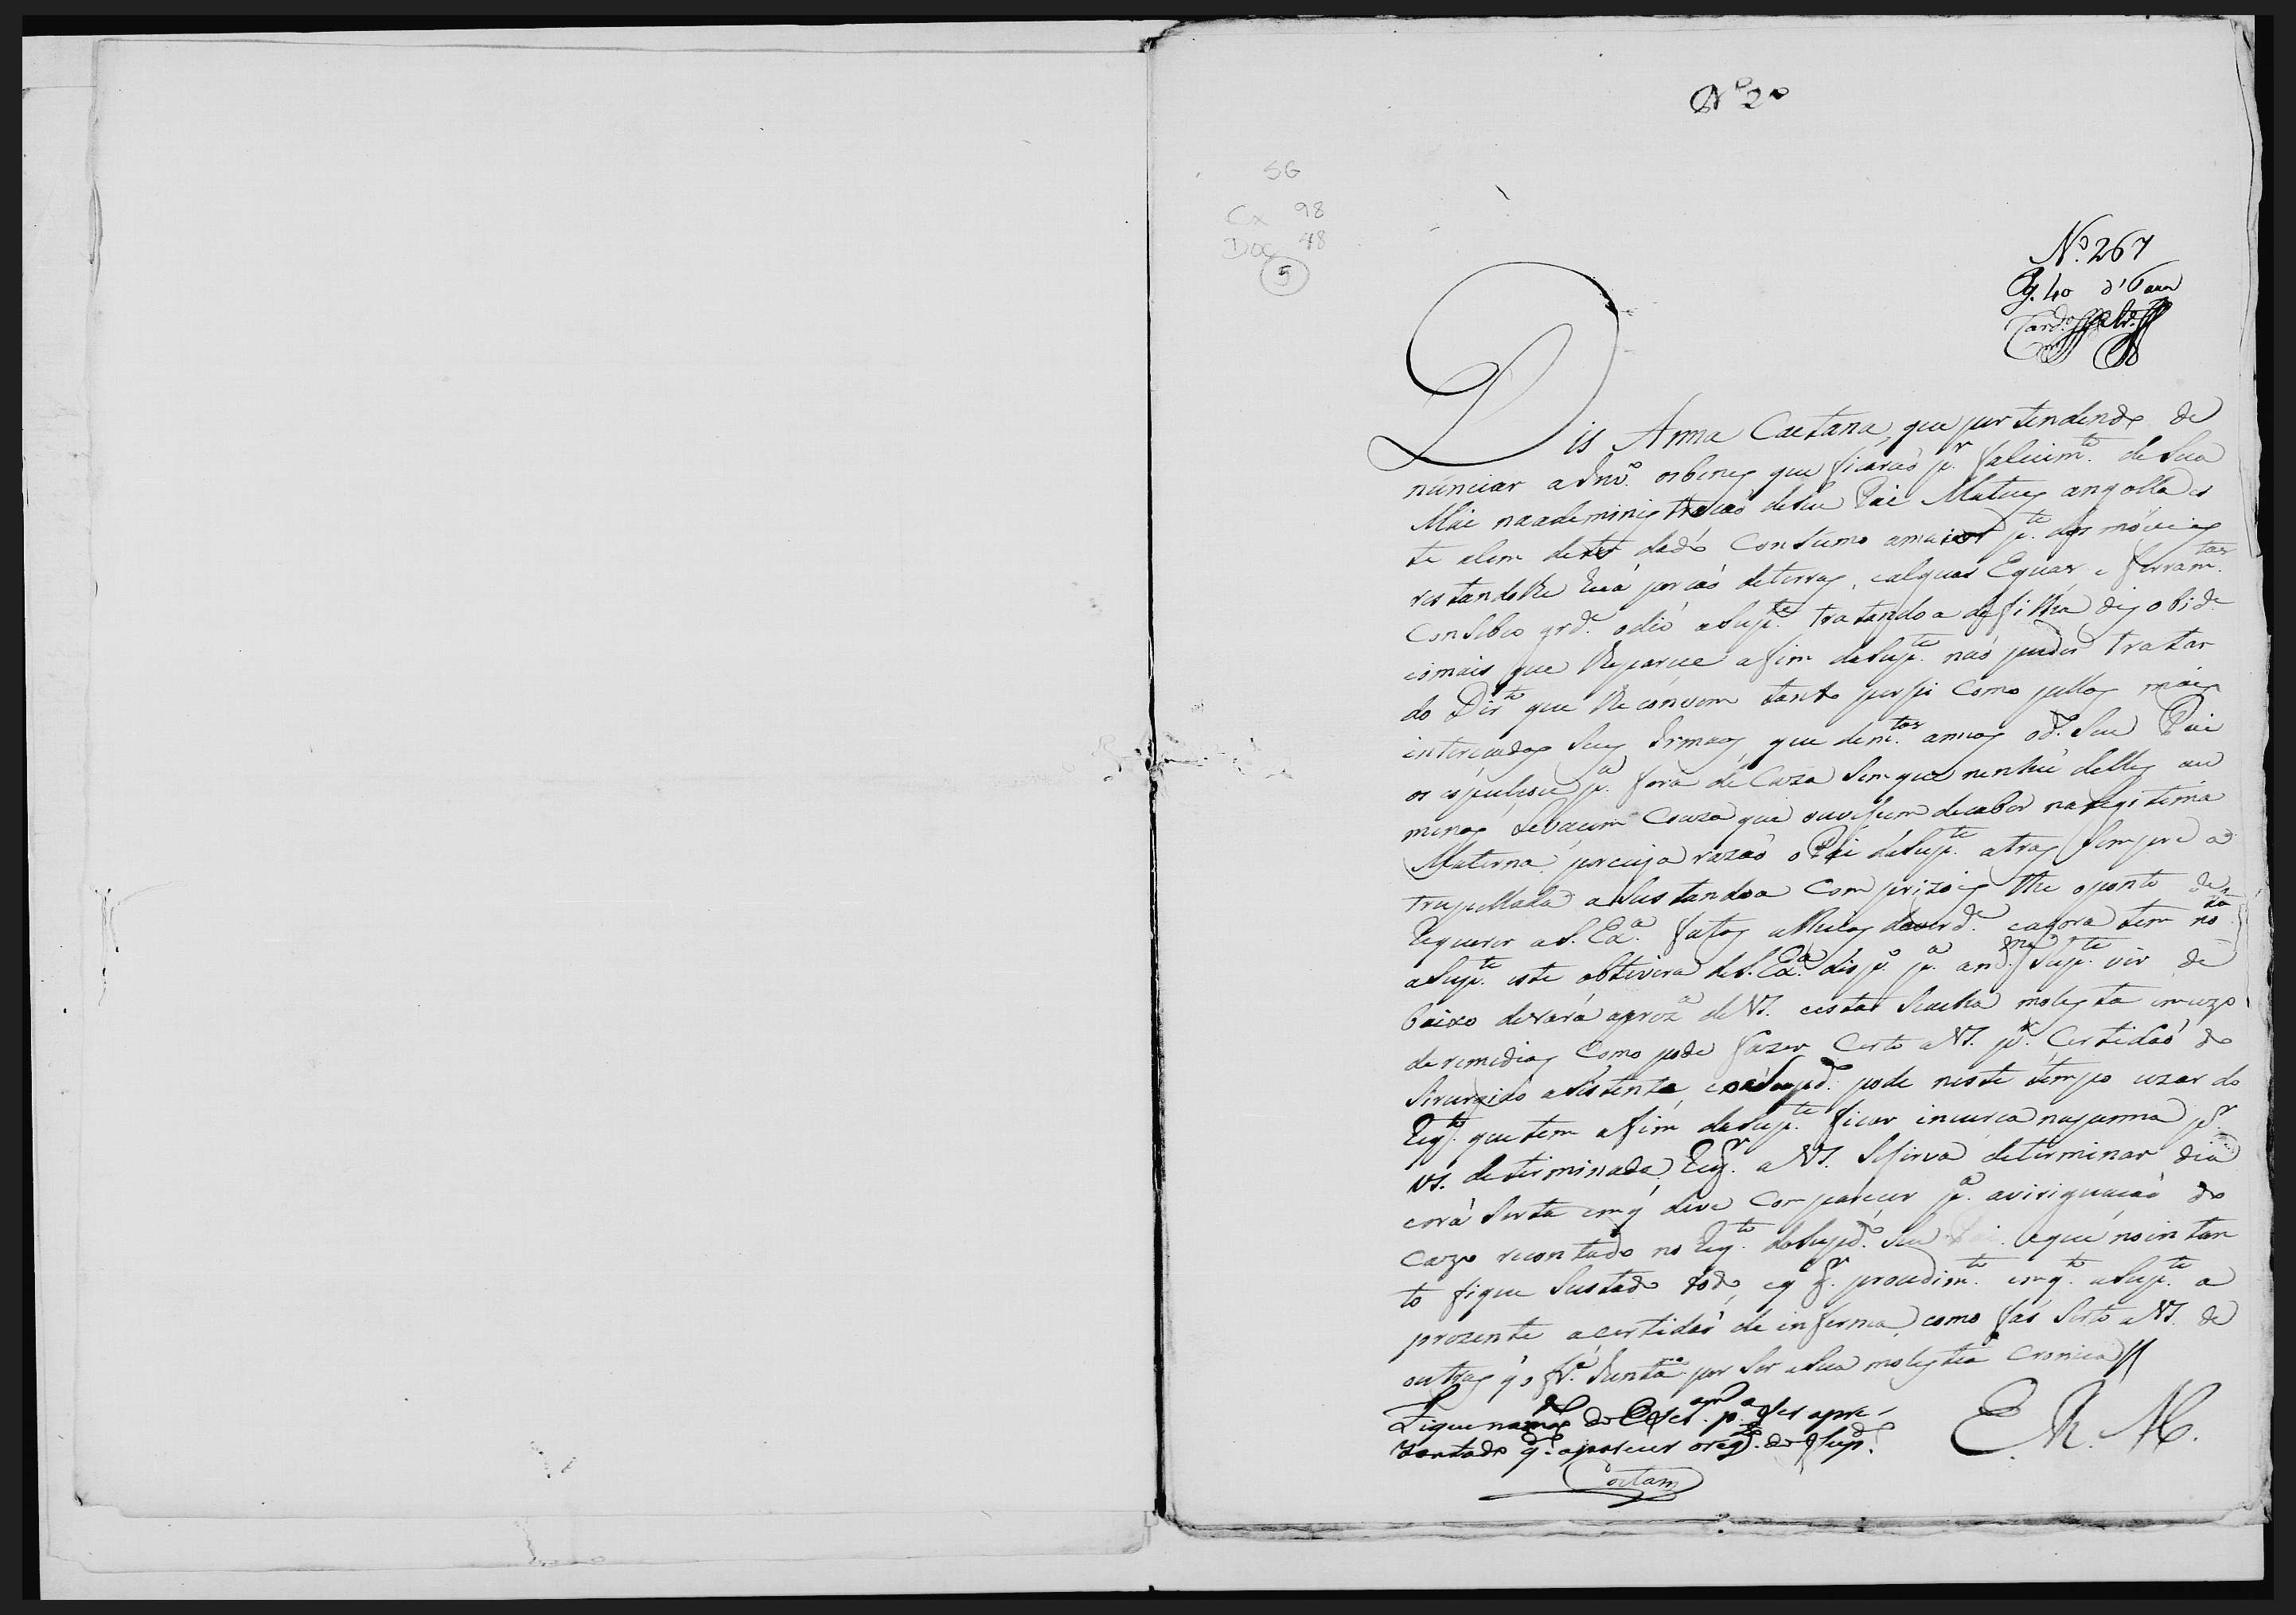 Nº 2º
SG
Cx 98
Doc 48
5
Nº. 267
Pg. 40
Dis Anna Caetana, que pertendendo de
nunciar a Inv.º os bens que ficarão p.r falecim.to de sua
Mãe na administração de seu Pai Mateus angolla es
te alem de ter dado consumo a maior p.te dos móveis
restandolhe huá porcão de terras, e alguas Eguas e ferram.tas
Consebeo grd.e odio a Sup.te tratando a de filha desobide
e o mais que lhe parece a fim da Sup.te não puder tratar
do Dir.to que lhe convem tanto por si como pellos mais
intereçados seus Irmaos que de m.tos annos o d.º Seu Pai
os espulsou p.a fora de Caza sem que nenhú delles ao
menos levacem Couza que ouvesem de caber na legitima
Materna, por cuja razaó o Pai da Sup.te a tras sempre a
trupellada asustandoa com prizois the o ponto de
Requerer a S. Ex.a fatos alheios da verd.e e agora tem no.ta
a Sup.te este obtivera de S. Ex.a desp.º p.a a m.ma Sup.te vir de
baixo de vara a prez.a de VS. e estar se acha molesta em uzo
de remedios como pode fazer Certo a VS. p.r Certidaó do
Sirurgiaó asistente, e o Sup.do pode neste tempo uzar do
Req.to que tem a fim da Sup.te ficar incursa na penna p.r
VS. determinada. Req.r a VS. se sirva determinar dia
e ora serta em q' deve comparecer p.a avirignacaó do
cazo recontado no Req.to do Sup.do seu Pai. e que no intan
to fique sustado todo, e q.l q.r procedim.to em q.to a Sup.te a
prezenta a certidaó de inferma, como fas serto a VS. de
outras q' o f.a junta por ser a sua molestia cronica //
E. R. M.
Fique na mao do Escr.am p.a ser apre-
zentado q.do aparecer o req.to do Sup.do